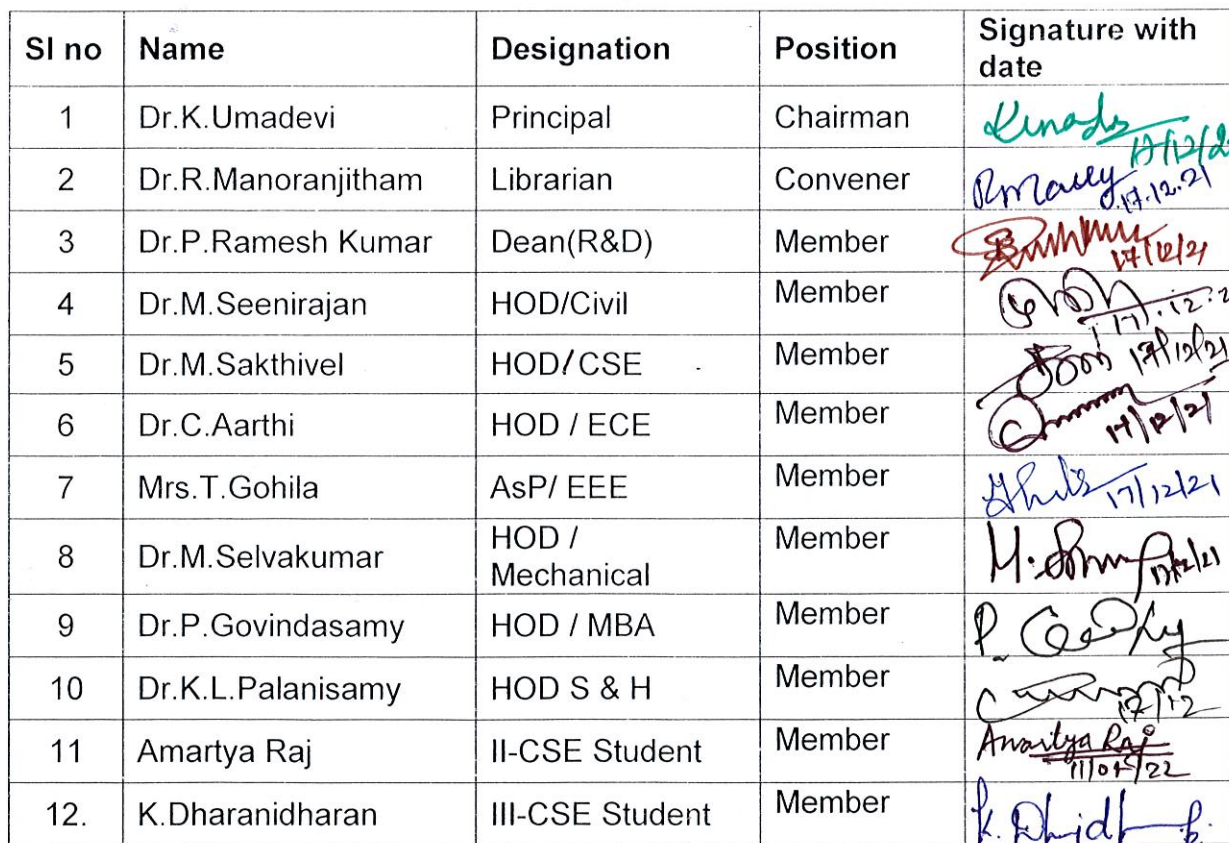 Sl no Name Designation Position Signature with
date
1 Dr.K.Umadevi Principal Chairman
2 Dr.R.Manoranjitham Librarian Convener 17.12.21
3 Dr.P.Ramesh Kumar Dean(R&D) Member 17/12/21
4 Dr.M.Seenirajan HOD/Civil Member
5 Dr.M.Sakthivel HOD/CSE Member 17/12/21
6 Dr.C.Aarthi HOD / ECE Member 17/12/21
7 Mrs.T.Gohila AsP/ EEE Member 17/12/21
8 Dr.M.Selvakumar HOD / Member
Mechanical
9 Dr.P.Govindasamy HOD / MBA Member P.
10 Dr.K.L.Palanisamy HOD S & H Member 17/12
11 Amartya Raj II-CSE Student Member Amartya Raj
12. K.Dharanidharan III-CSE Student Member